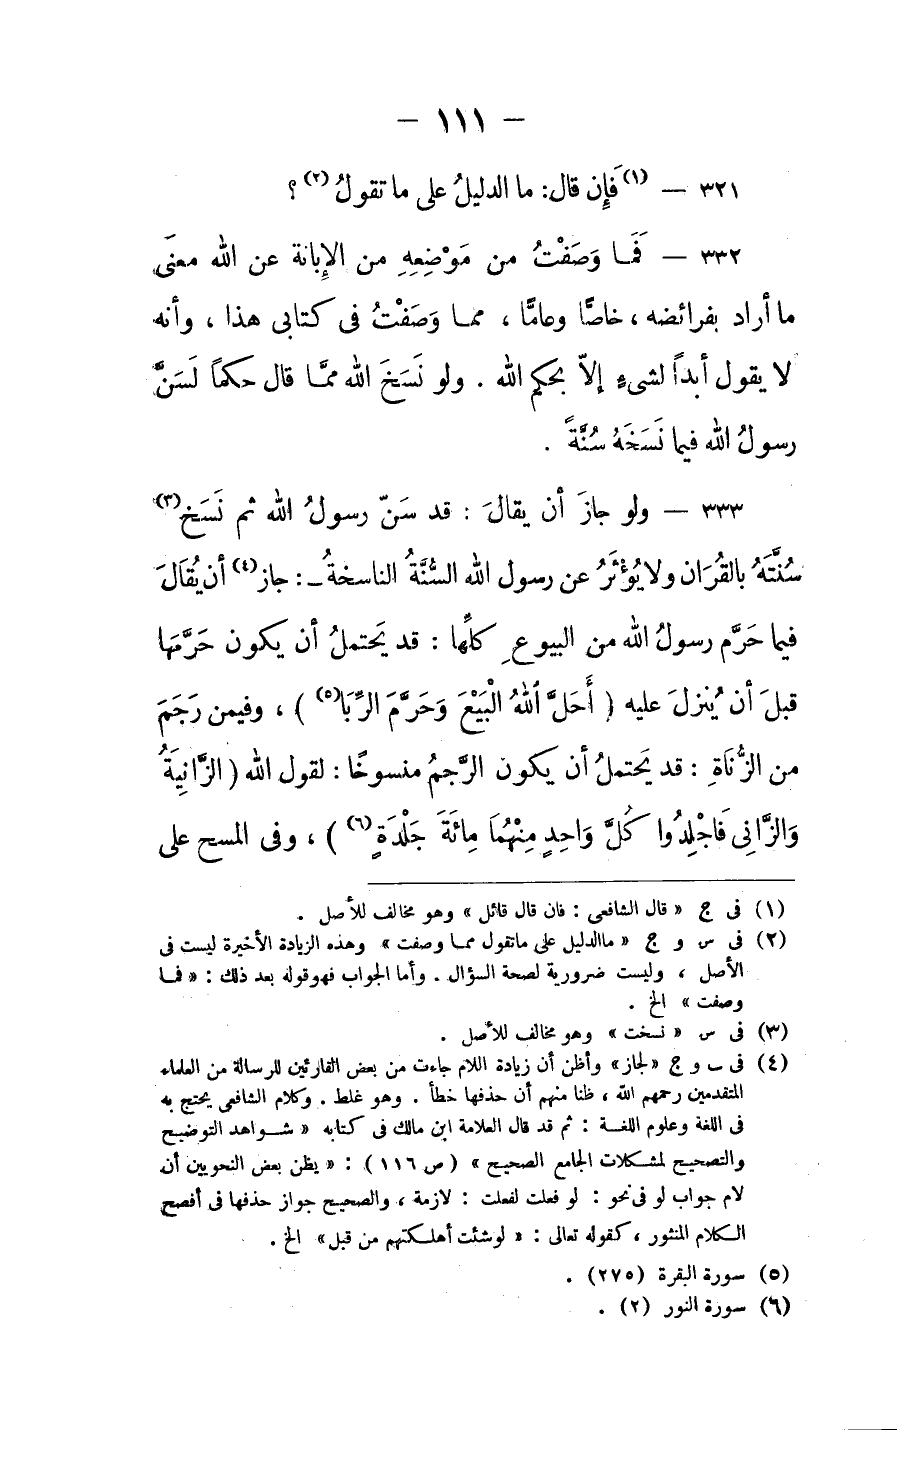 – ١١١ –
٣٢١ – (١) فَإِن قال: ما الدليلُ على ما تقولُ (٢) ؟
٣٣٢ – فَمَا وَصَفْتُ من مَوْضِعِهِ من الإِبانة عن الله معنَى
ما أراد بفرائضه ، خاصًّا وعامًّا ، مما وَصَفْتُ فى كتابى هذا ، وأنه
لا يقول أبداً لشىءٍ إلاّ بحكم الله . ولو نَسَخَ الله ممَّا قال حكماً لَسَنَّ
رسولُ الله فيما نَسَخَهُ سُنَّةً .
٣٣٣ – ولو جازَ أن يقالَ : قد سَنّ رسولُ الله ثم نَسَخَ (٣)
سُنَّتَهُ بالقُرَان ولا يُؤْثَرُ عن رسول الله السُّنَّةُ الناسخةُ ـ : جاز (٤) أن يُقَالَ
فيما حَرَّم رسولُ الله من البيوعِ كلِّها : قد يَحتملُ أن يكون حَرَّمَها
قبلَ أن يُنزلَ عليه ( أَحَلَّ ٱللهُ الْبَيْعَ وَحَرَّمَ الرِّبَا (٥) ) ، وفيمن رَجَمَ
من الزُّنَاةِ : قد يَحتملُ أن يكون الرَّجمُ منسوخًا : لقول الله ( الزَّانِيَةُ
وَالزَّانِى فَاجْلِدُوا كُلَّ وَاحِدٍ مِنْهُمَا مِائَةَ جَلْدَةٍ (٦) ) ، وفى المسح على
(١) فى ج « قال الشافعى : فان قال قائل » وهو مخالف للأصل .
(٢) فى س و ج « ما الدليل على ما تقول مما وصفت » وهذه الزيادة الأخيرة ليست فى
الأصل ، وليست ضرورية لصحة السؤال . وأما الجواب فهو قوله بعد ذلك : « فما
وصفت » الخ .
(٣) فى س « نسخت » وهو مخالف للأصل .
(٤) فى ب و ج « لجاز » وأظن أن زيادة اللام جاءت من بعض القارئين للرسالة من العلماء
المتقدمين رحمهم الله ، ظنا منهم أن حذفها خطأ . وهو غلط . وكلام الشافعى يحتج به
فى اللغة وعلوم اللغة : ثم قد قال العلامة ابن مالك فى كتابه « شواهد التوضيح
والتصحيح لمشكلات الجامع الصحيح » ( ص ١١٦ ) : « يظن بعض النحويين أن
لام جواب لو فى نحو : لو فعلت لفعلت : لازمة ، والصحيح جواز حذفها فى أفصح
الكلام المنثور ، كقوله تعالى : « لو شئت أهلكتهم من قبل » الخ .
(٥) سورة البقرة (٢٧٥) .
(٦) سورة النور (٢) .